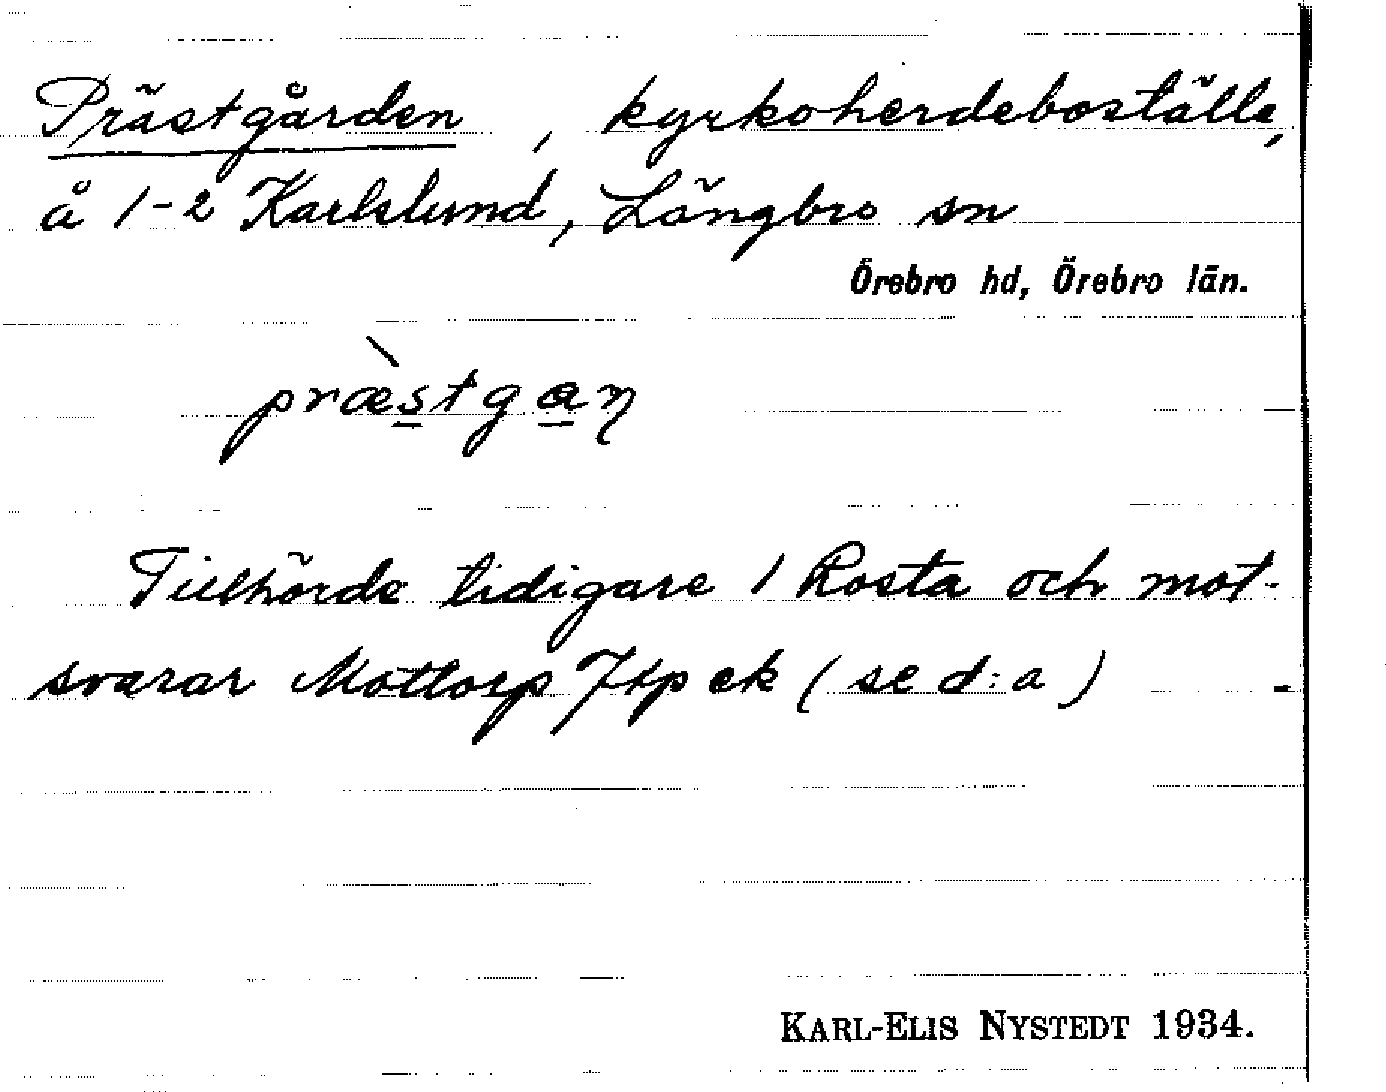 Prästgården, kyrkoherdeboställe,
å 1-2 Karlslund, Längbro sn
Örebro hd, Örebro län.
præ̀stgaɳ
Tillhörde tidigare 1 Rosta och mot-
svarar Mottorp Jtp ek (se d:a)
KARL-ELIS NYSTEDT 1934.